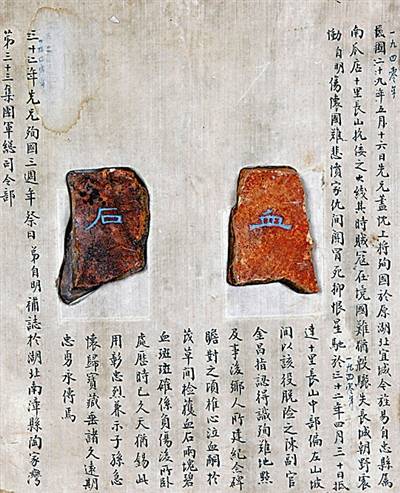 一九四零年
民國二十九年五月十六日先兄藎忱上將殉國於原湖北宜城今茲易自忠縣屬
南瓜店十里長山抗倭之火線其時賊寇在境國難猶殷噩失長城朝野震
慟自明傷懷國難悲憤家仇間關冒死抑恨星馳於三十二年四月三十日抵
達十里長山中部偏左山坡
間以該役脫險之陳副官
金昌指認得識殉難地點
及事後鄉人所建紀念碑
瞻對之頃椎心泣血嗣於
茂草間檢獲血石兩塊碧
血斑斑確係負傷後所卧
處歷時已久天猶錫此
用彰忠烈眷示子孫急
懷歸寶藏垂諸久遠期
忠勇永傳焉
血
石
三十二年先兄殉國三週年祭日弟自明補誌於湖北南漳縣陶家灣
第三十三集團軍總司令部